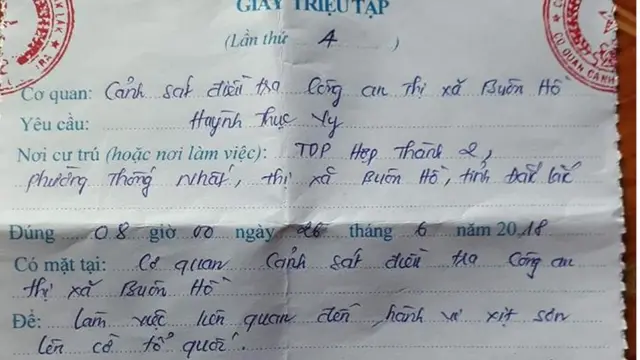 GIẤY TRIỆU TẬP
(Lần thứ 1)
Cơ quan: Cảnh sát điều tra Công an thị xã Buôn Hồ
Yêu cầu: Huỳnh Thục Vy
Nơi cư trú (hoặc nơi làm việc): TDP Hợp Thành 2,
phường Thống Nhất, thị xã Buôn Hồ, tỉnh Đắk Lắk
Đúng 08 giờ 00 ngày 26 tháng 6 năm 2018
Có mặt tại: Cơ quan Cảnh sát điều tra Công an
thị xã Buôn Hồ
Để: Làm việc liên quan đến hành vi xịt sơn
lên cờ tổ quốc.